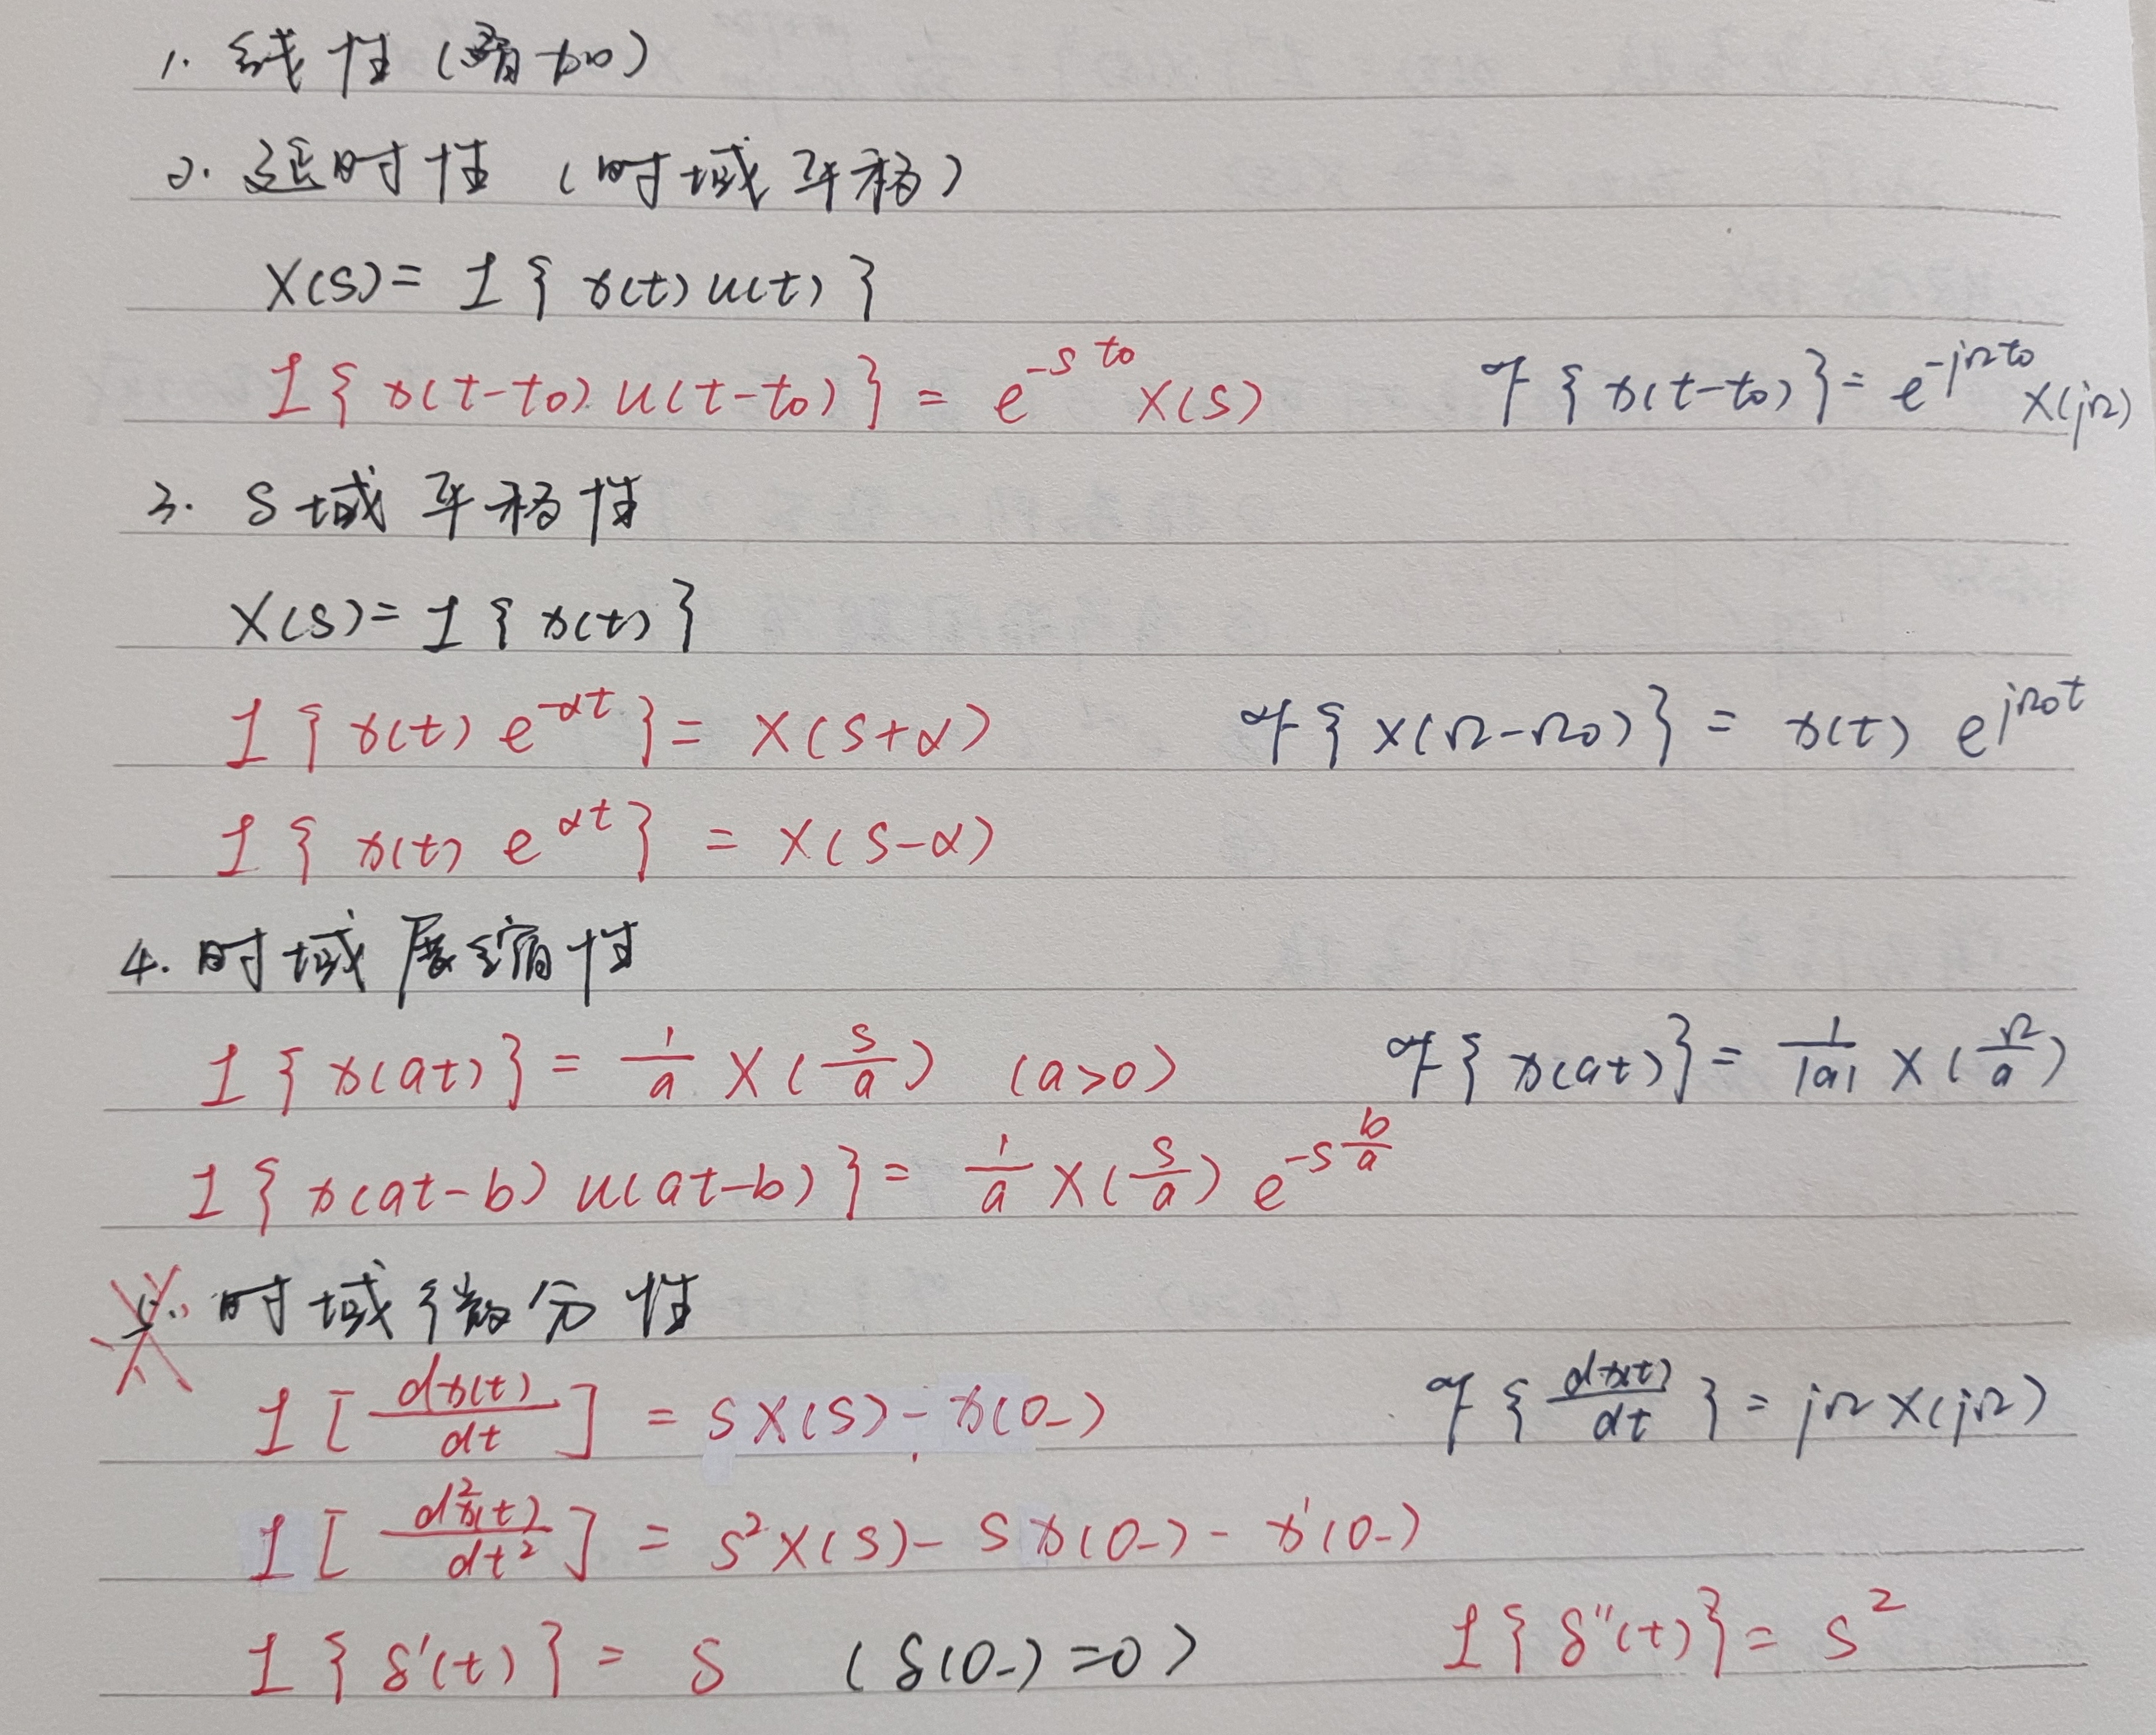 1. 线性(叠加)
2. 延时性 (时域平移)
X(s)= ℒ{x(t)u(t)}
ℒ{x(t-t₀)u(t-t₀)} = e^{-st₀}X(s) ℱ{x(t-t₀)}= e^{-jΩt₀}X(jΩ)
3. S域平移性
X(s)= ℒ{x(t)}
ℒ{x(t)e^{-αt}}= X(s+α) ℱ{X(Ω-Ω₀)} = x(t) e^{jΩ₀t}
ℒ{x(t)e^{αt}} = X(s-α)
4. 时域展缩性
ℒ{x(at)}= \frac{1}{a}X(\frac{s}{a}) (a>0) ℱ{x(at)}= \frac{1}{|a|}X(\frac{Ω}{a})
ℒ{x(at-b)u(at-b)}= \frac{1}{a}X(\frac{s}{a})e^{-s\frac{b}{a}}
5. 时域微分性
ℒ[\frac{dx(t)}{dt}] = sX(s)-x(0₋) ℱ{\frac{dx(t)}{dt}}= jΩX(jΩ)
ℒ[\frac{d²x(t)}{dt²}] = s²X(s)-sx(0₋)-x'(0₋)
ℒ{δ'(t)}= s (δ(0₋)=0) ℒ{δ''(t)}= s²